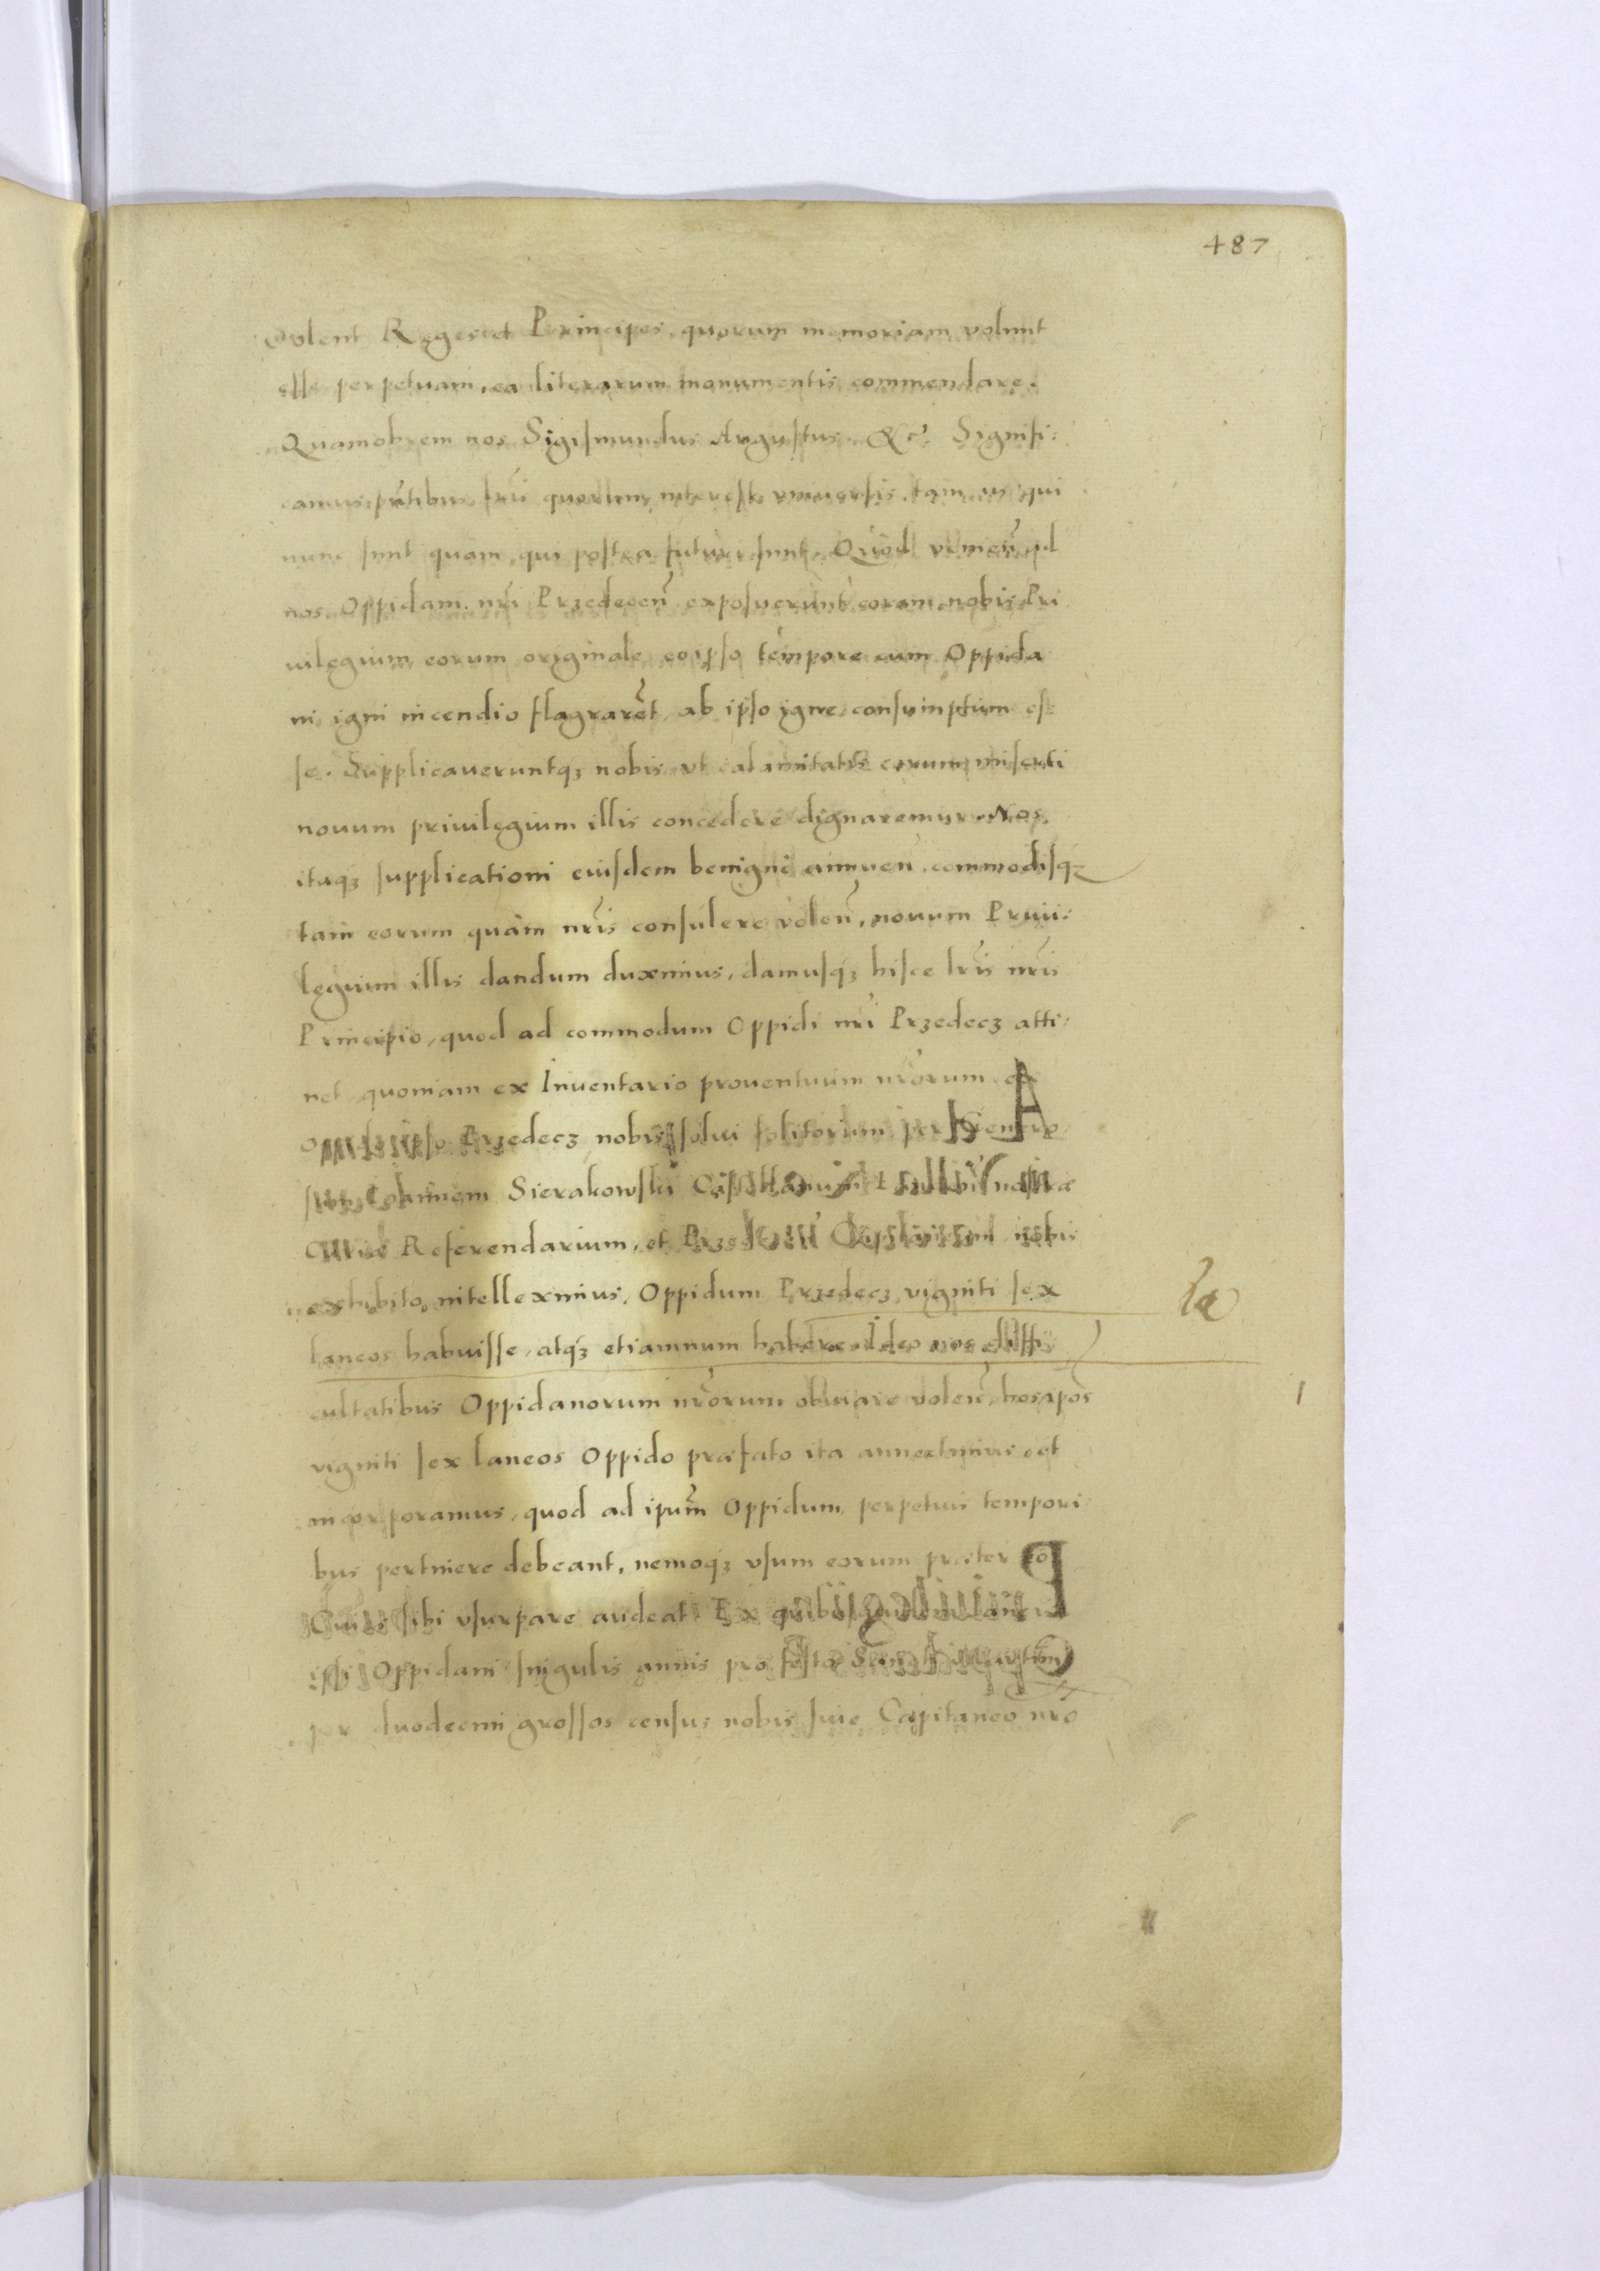 487
Solent Reges et Principes, quorum memoriam volunt
esse perpetuam, ea literarum monumentis commendare.
Quamobrem nos Sigismundus Augustus &c. Signifi:
camus pñtibus lris quorum interest vniuersis, tam iis qui
nunc sunt quam qui postea futuri sunt. Quod venien̄ ad
nos Oppidani nrī Przedecen̄ exposuerunt coram nobis Pri
uilegium eorum originale eo ipso tempore cum Oppida
ni igni incendio flagraret, ab ipso igne consumptum es
se. Supplicaueruntqꝫ nobis vt calamitatis eorum miserti
nouum priuilegium illis concedere dignaremur. Nos
itaqꝫ supplicationi eiusdem benigne annuen̄ commodisqꝫ
tam eorum quàm nrīs consulere volen̄, nouum Priui:
legium illis dandum duximus, damusqꝫ hisce lrīs nrīs
Principio, quod ad commodum Oppidi nrī Przedecz atti:
net quoniam ex Inuentario prouentuum nrōrum ex
ipso Przedecz nobis solui solitorum per Genero
sum Ioannem Sierakowski nostræ
Curiæ Referendarium, et nobis
exhibito intelleximus, Oppidum Przedecz viginti sex
laneos habuisse, atqꝫ etiamnum habere. Ideo nos diffi
cultatibus Oppidanorum nrōrum obuiare volen̄, hos ipos
viginti sex laneos Oppido præfato ita anneximus et
incorporamus, quod ad ipum̄ Oppidum perpetuis tempori
bus pertinere debeant, nemoqꝫ vsum eorum præter eo
sibi vsurpare audeat. Ex
ipsi Oppidani singulis annis pro festo Sancti Martini
per duodecim grossos census nobis siue Capitaneo nro